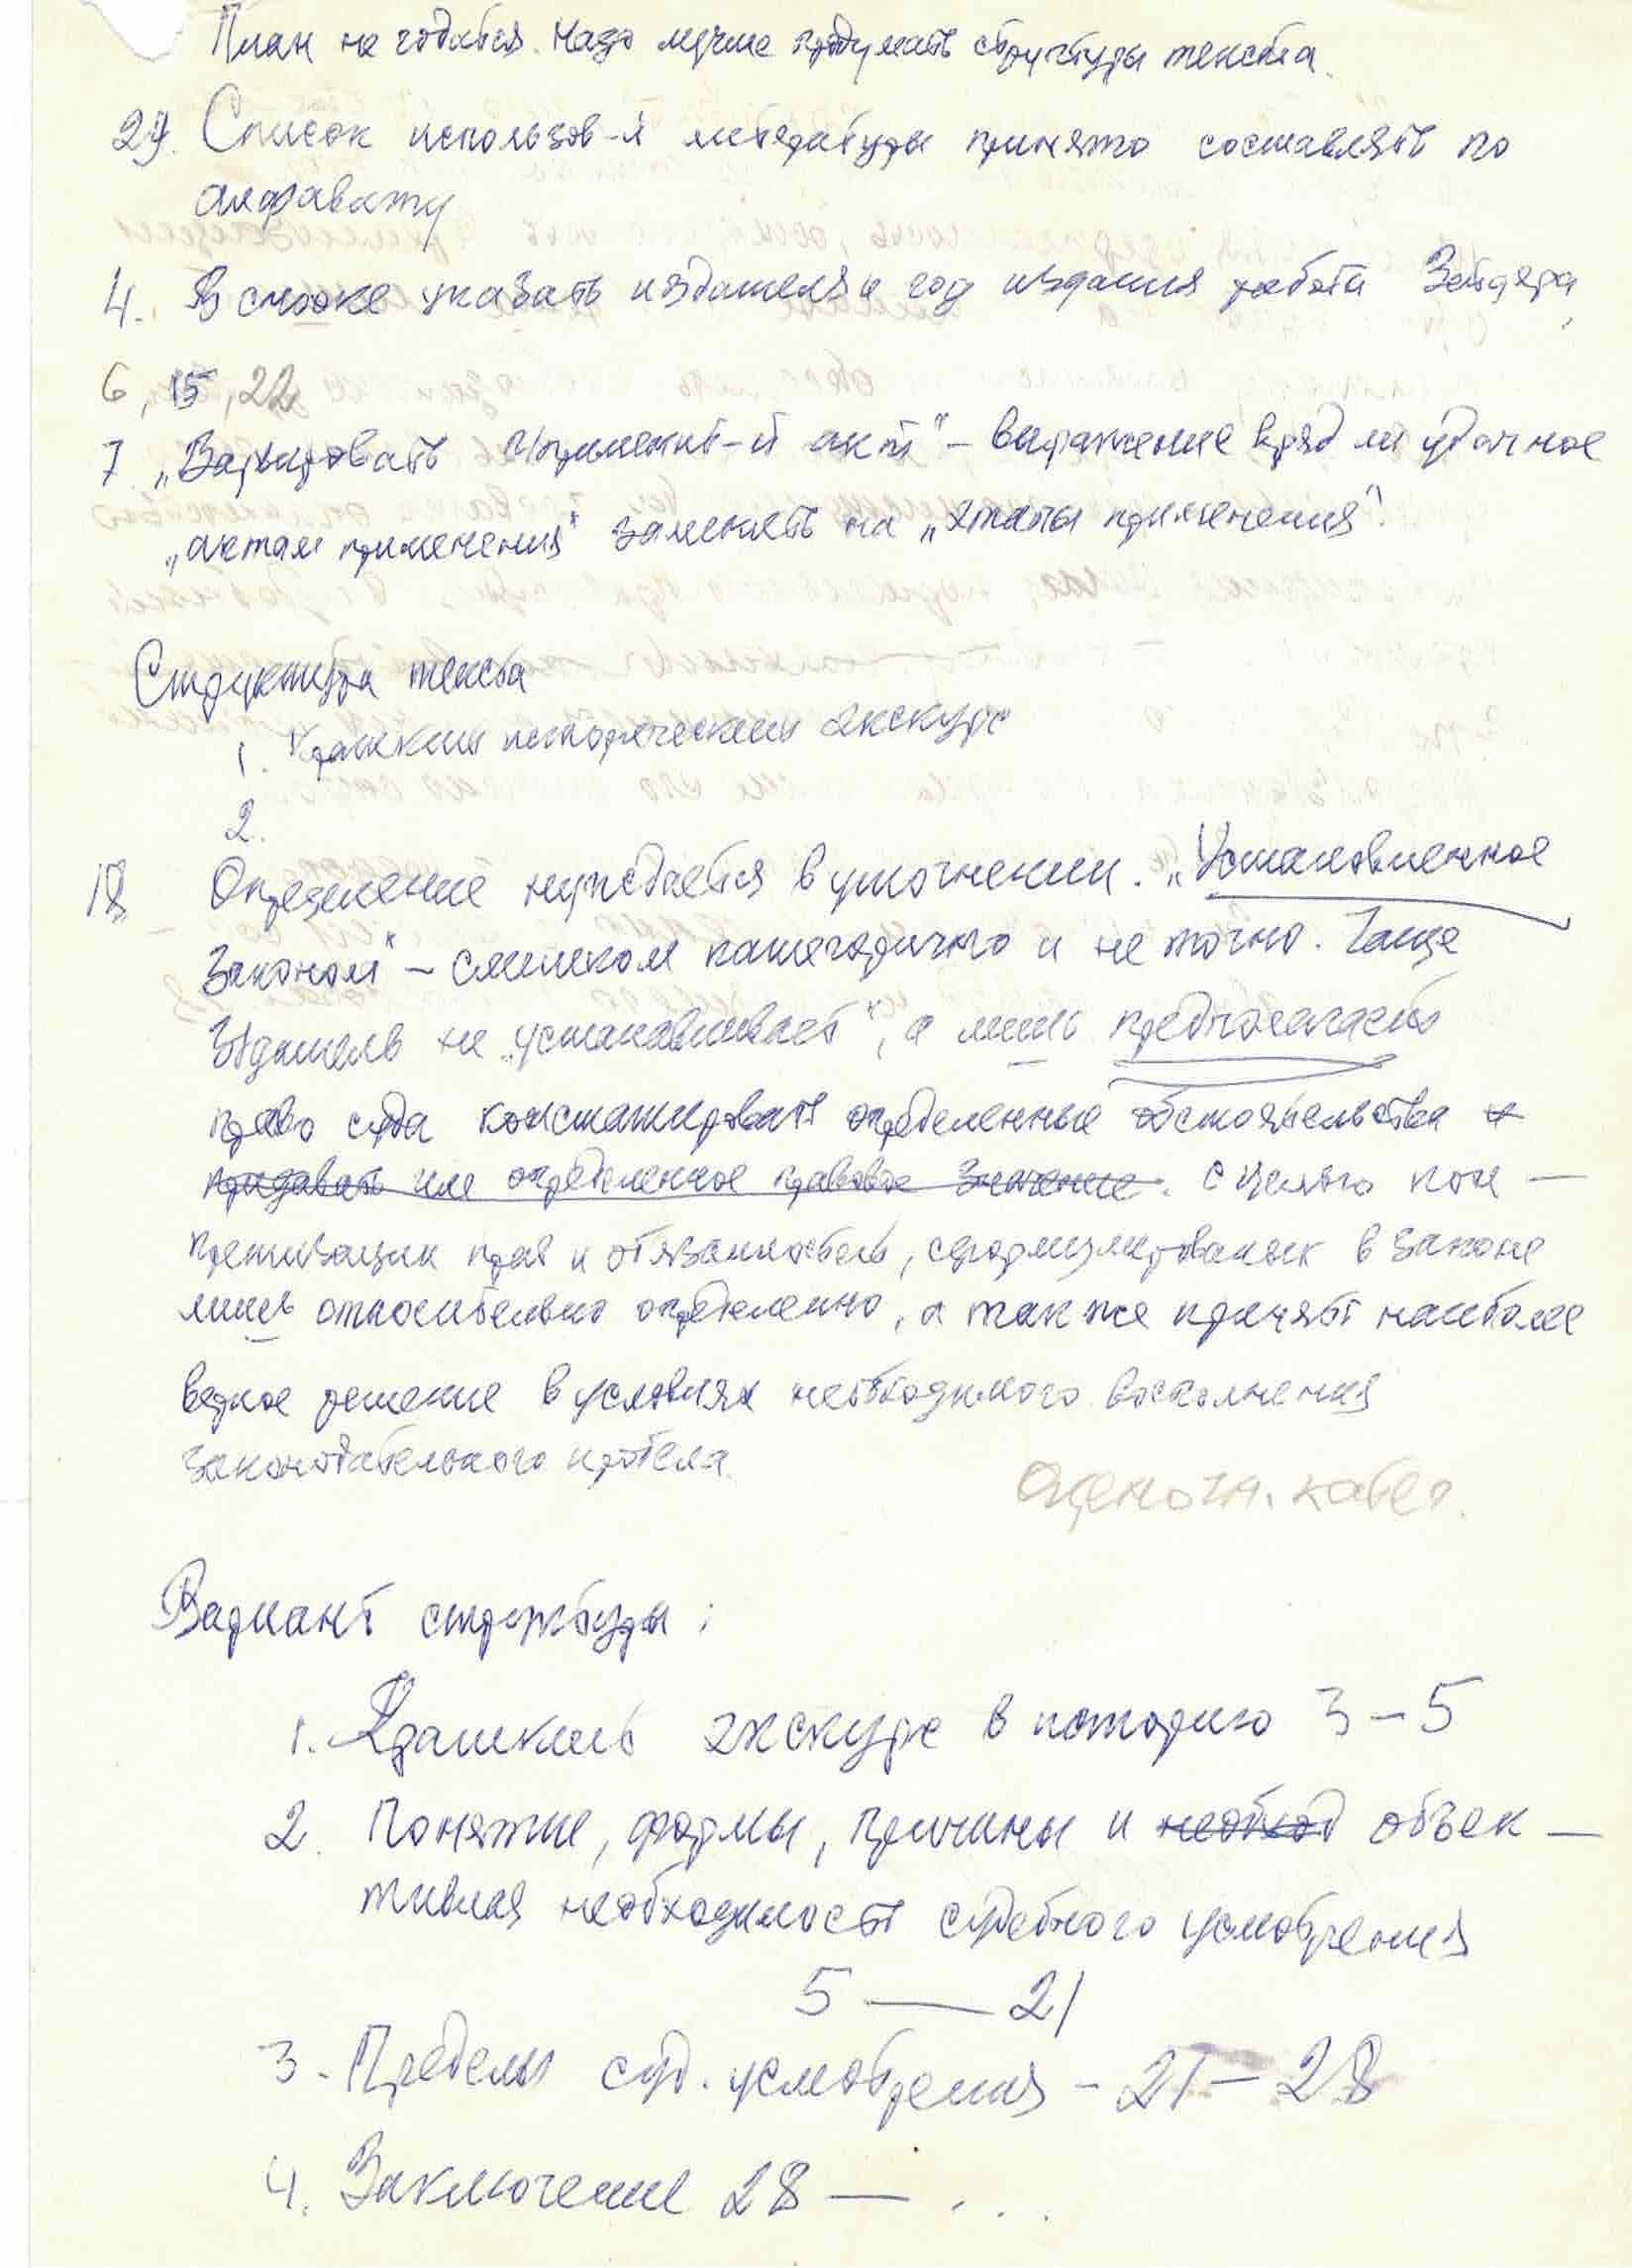 План не годится. Надо лучше продумать структуры текста.
29. Список использов-й литературы принято составлять по
алфавиту
4. В сноске указать издателя и год издания работы Зейдера,
6, 15, 22
7. „Варьировать применит-й акт" – выражение вряд ли удачное
„актам применения" заменять на „этапы применения".
Структура текста
1. Краткий исторический экскурс
2.
18 Определение нуждается в уточнении. „Установленное
Законом" – слишком категорично и не точно. Чаще
не „устанавливает", а лишь предполагает
право суда констатировать определенные обстоятельства и
придавать им определенное правовое значение. с целью кон –
кретизации прав и обязанностей, сформулированных в законе
лишь относительно определенно, а также принять наиболее
верное решение в условиях необходимого восполнения
законодательного пробела.
Оценочн. катег.
Вариант структуры:
1. Краткий экскурс в историю 3 – 5
2. Понятие, формы, причины и необход объек –
тивная необходимость судебного усмотрения
5 — 21
3. Пределы суд. усмотрения – 21 – 28
4. Заключение 28 — . . .